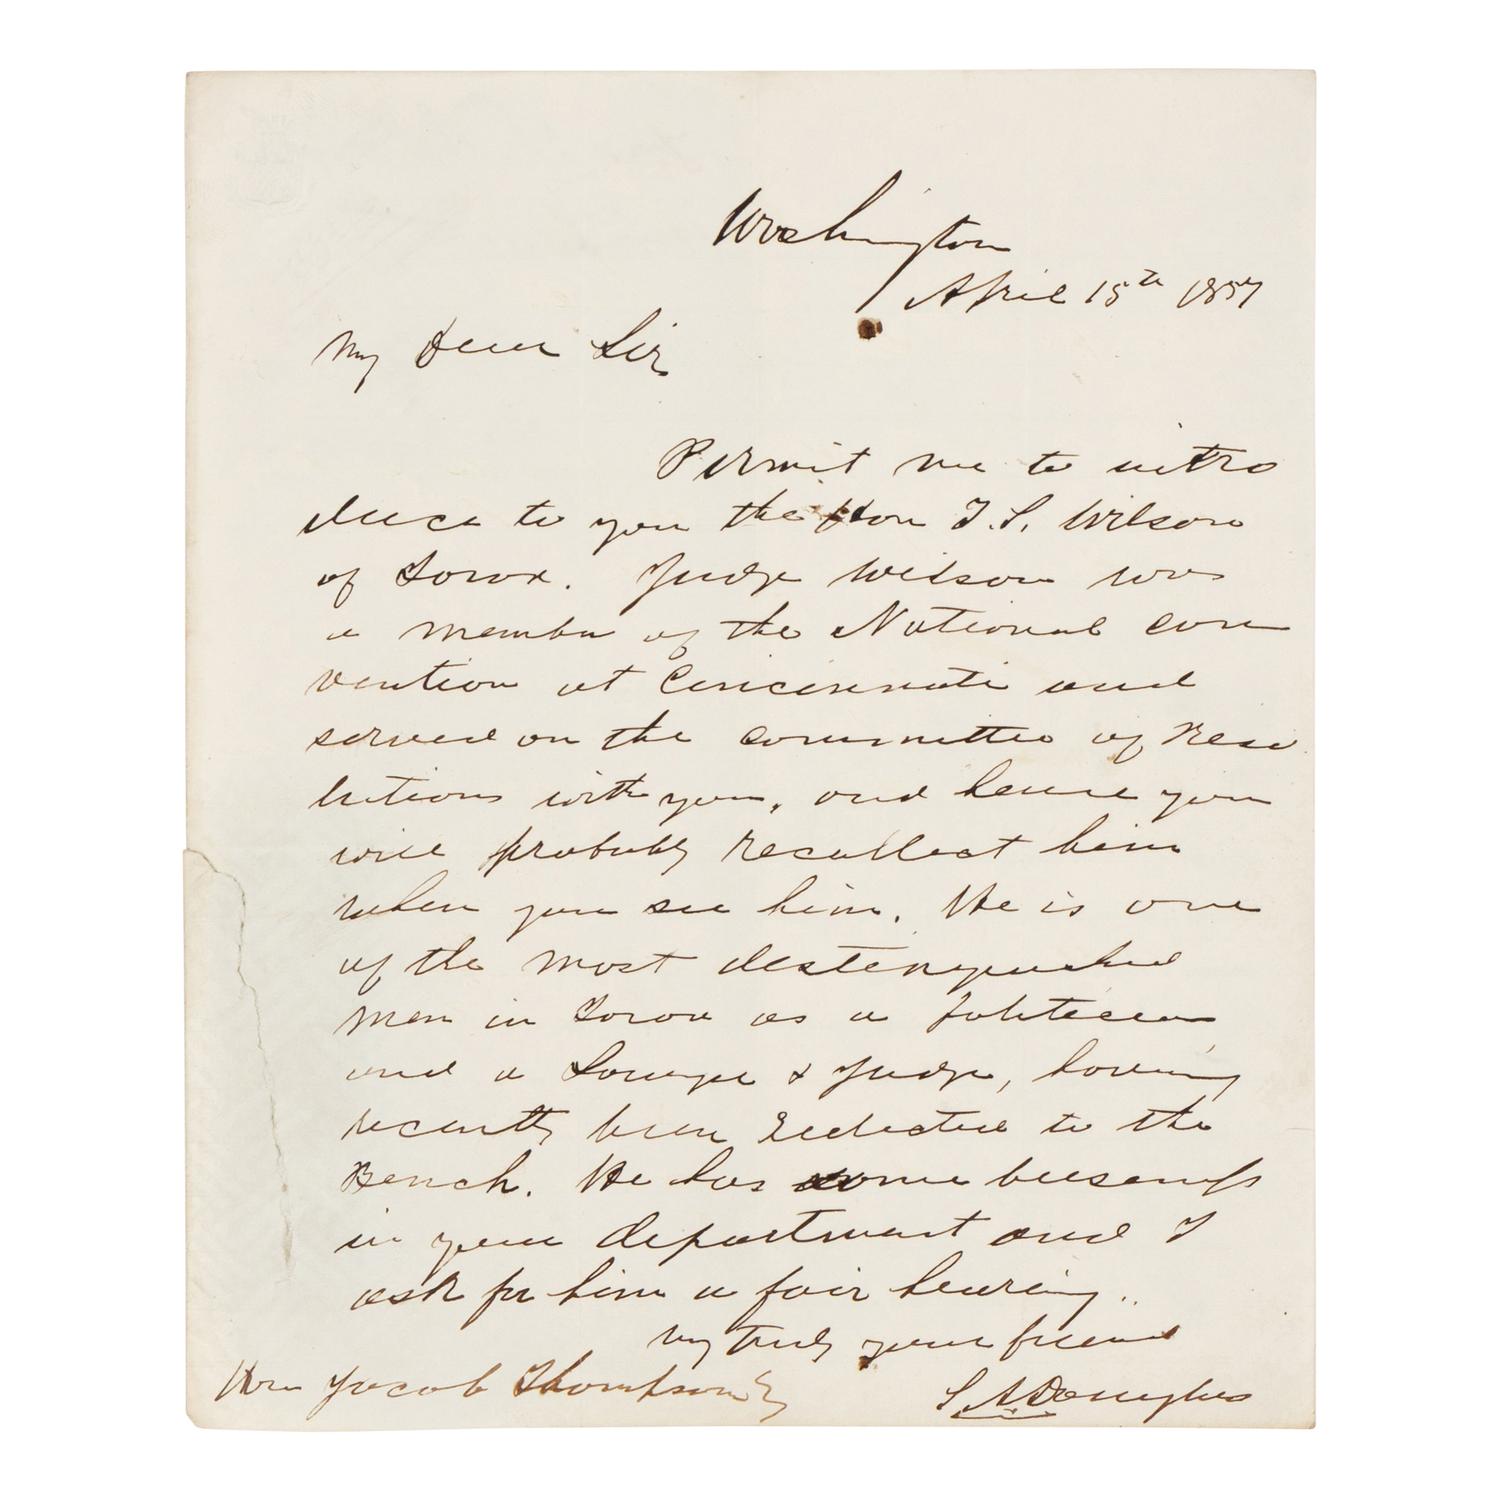 Washington
April 15th 1857
My Dear Sir
Permit me to intro
duce to you the Hon T. S. Wilson
of Iowa. Judge Wilson was
a member of the National con
vention at Cincinnati and
served on the committee of Reso
lutions with you, and hence you
will probably recollect him
when you see him. He is one
of the most distinguished
men in Iowa as a politician
and a Lawyer & Judge, having
recently been Reelected to the
Bench. He has some business
in your department and I
ask for him a fair hearing.
Very truly your friend
S. A. Douglas
Hon Jacob Thompson